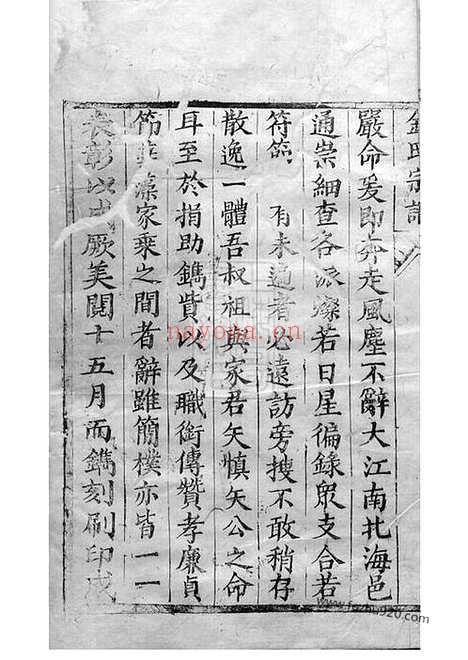 氏宗譜
嚴命爰即奔走風塵不辭大江南北海邑
通崇細查各派燦若日星徧錄眾支合若
符節 有未適者必遠訪旁搜不敢稍存
散逸一體吾叔祖與家君矢慎矢公之命
耳至於捐助鐫貲以及職銜傳贊孝廉貞
節 藻家乘之間者辭雖簡樸亦皆一一
表彰以成厥美閱十五月而鐫刻刷印成
nayona.cn